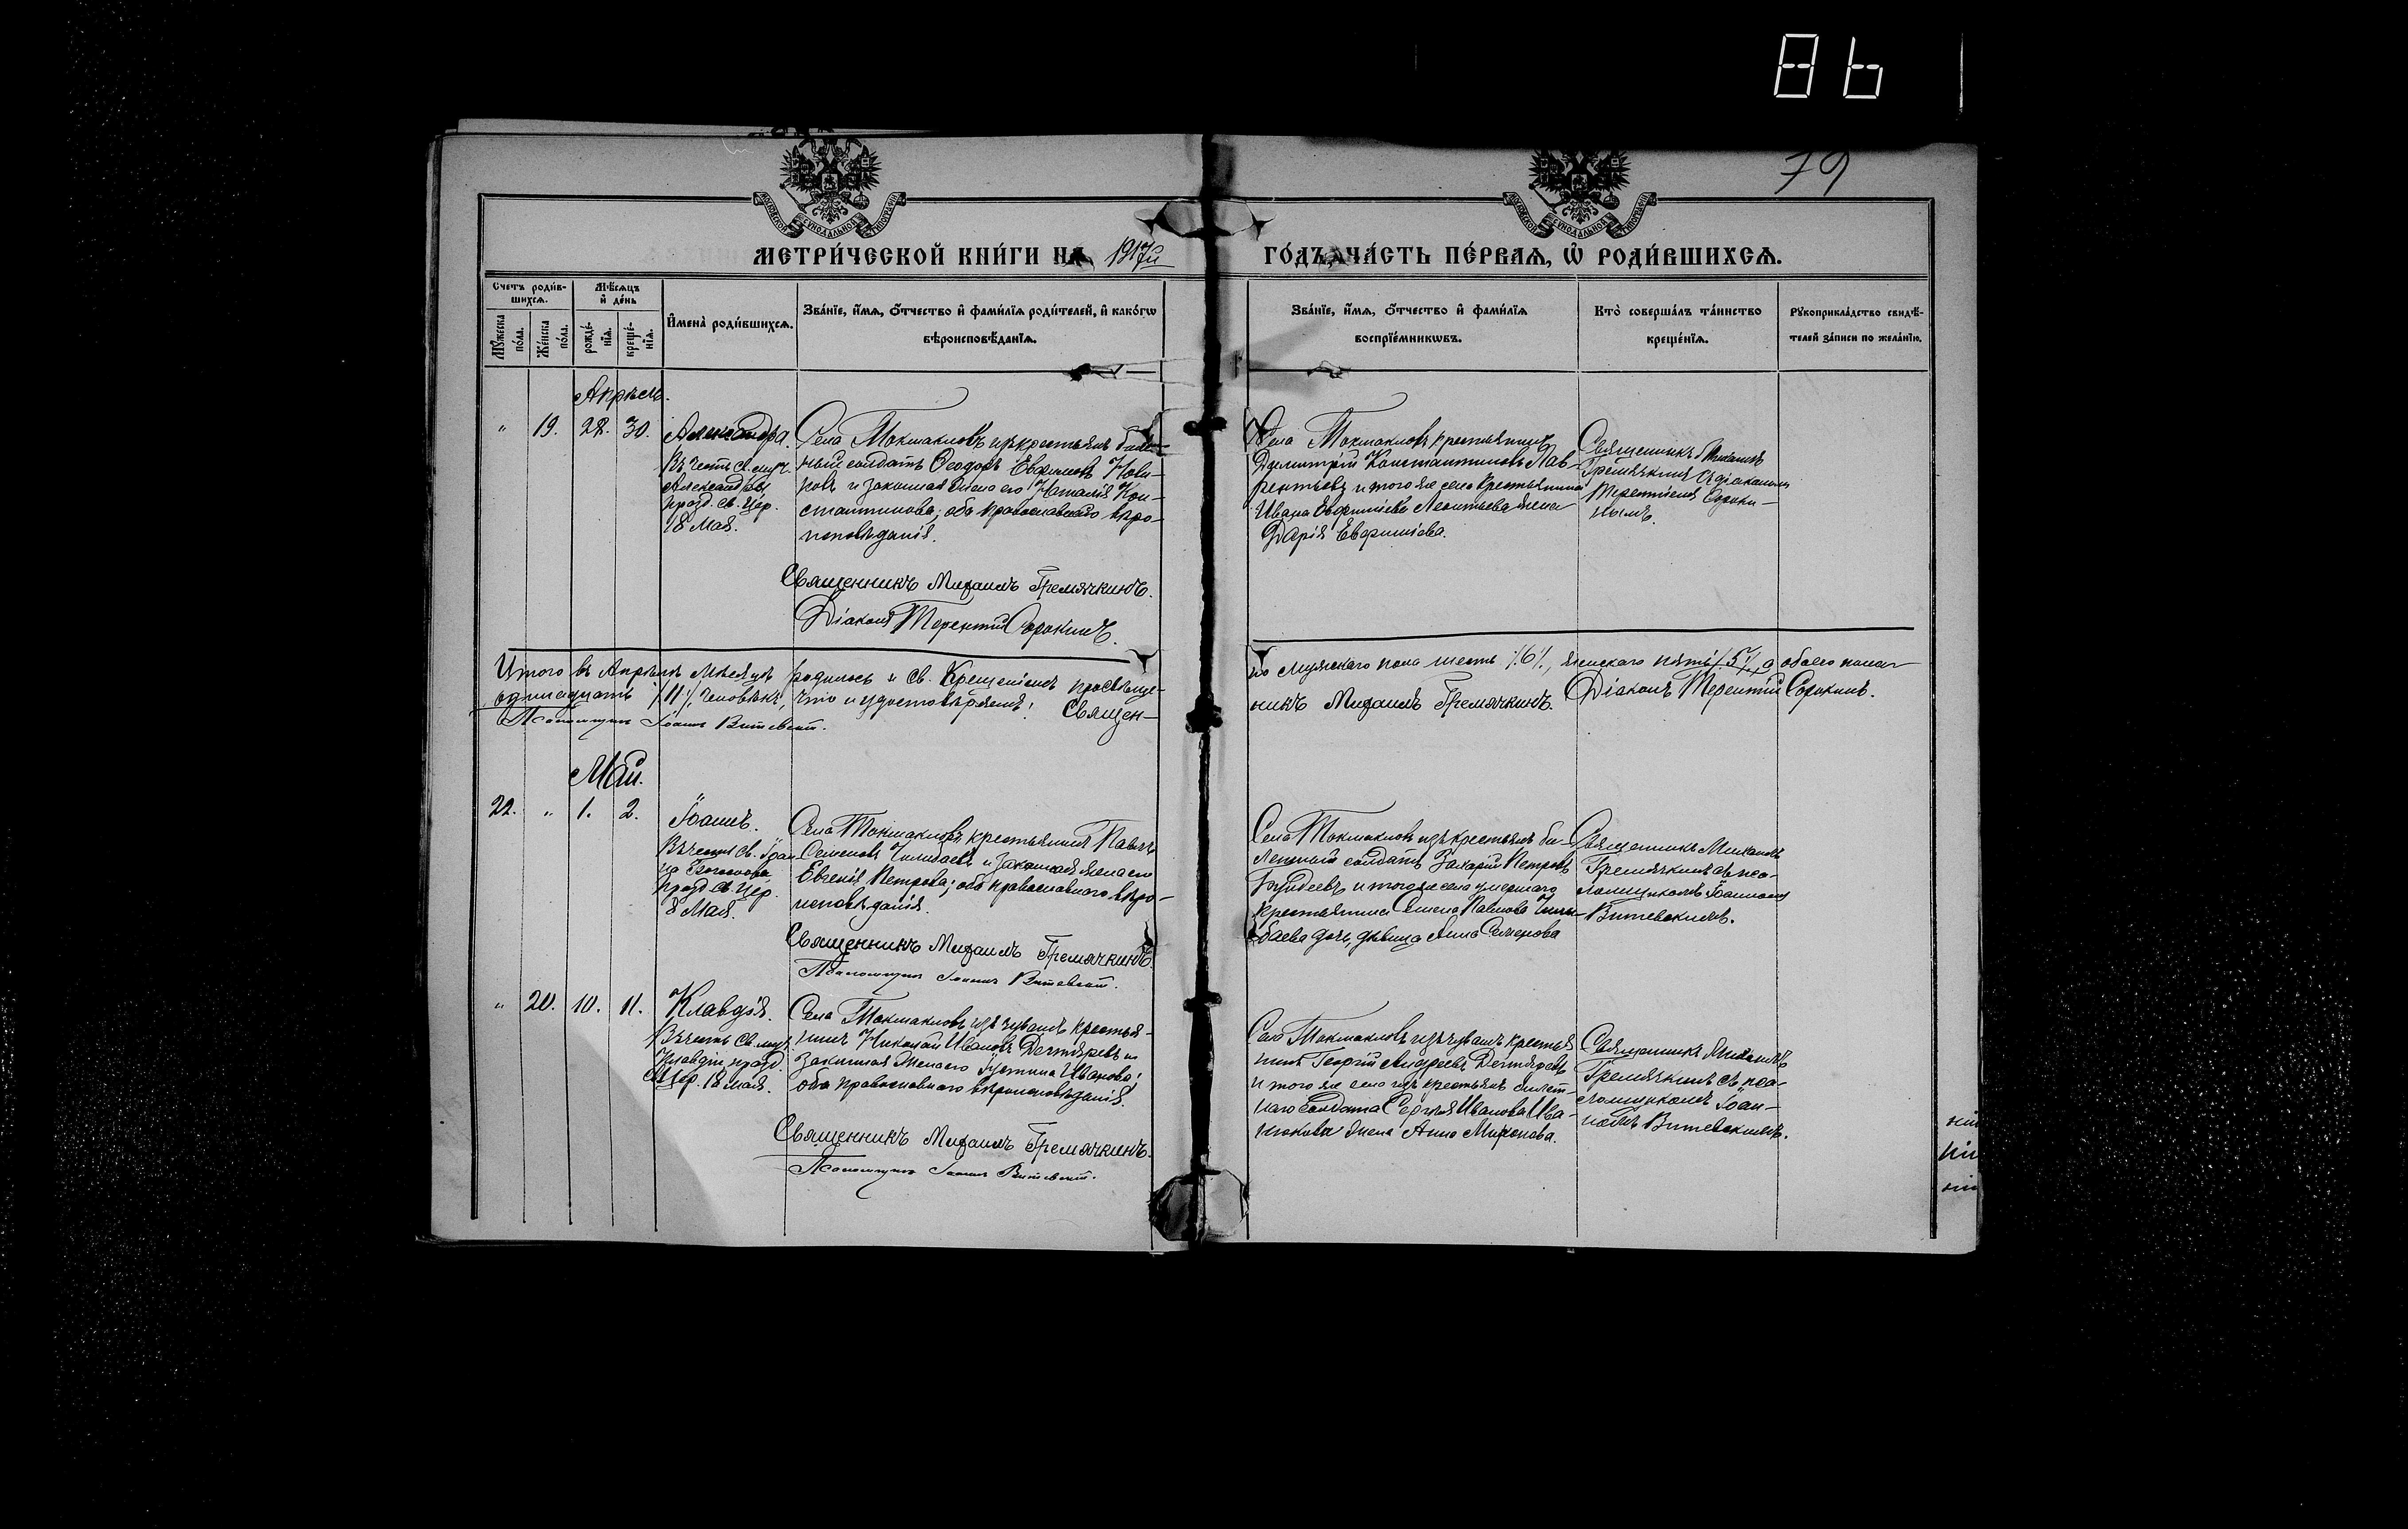 86
79
МЕТРИ́ЧЕСКОЙ КНИ́ГИ НА 1917й ГО́ДЪ, ЧА́СТЬ ПЕ́РВАѦ, Ѡ҆ РОДИ́ВШИХСѦ.
Счетъ роди́в-
шихсѧ.
Мѣ́сѧцъ
и҆ де́нь
Мꙋ́жеска
по́ла.
Же́нска
по́ла.
рожде́-
нїѧ.
креще́-
нїѧ.
И҆мена̀ роди́вшихсѧ.
Зва́нїе, и҆́мѧ, ѻ҆́тчество и҆ фами́лїѧ роди́телей, и҆ како́гѡ
вѣроисповѣ́данїѧ.
Зва́нїе, и҆́мѧ, ѻ҆́тчество и҆ фами́лїѧ
воспрїе́мникѡвъ.
Кто̀ соверша́лъ та́инство
креще́нїѧ.
Рꙋкоприкла́дство свидѣ́-
телей за́писи по жела́нїю.
Апрѣль.
" 19. 28. 30.
Александра.
Въ честь св. муч.
Александры
празд. св. Цер.
18 Мая.
Села Токмакловъ изъ крестьянъ билет-
ный солдатъ Ѳеодоръ Евфимовъ
и законная жена его Наталія Кон-
стантинова; оба православнаго вѣро-
исповѣданія.
Священникъ Михаилъ Гремячкинъ.
Діаконъ Терентій Сорокинъ.
Села Токмакловъ крестьянинъ
Димитрій Константиновъ Лав-
рентьевъ и того же села крестьянина
Ивана Евфиміева Леонтьева жена
Дарія Евфиміева.
Священникъ Михаилъ
Гремячкинъ съ діакономъ
Терентіемъ Сороки-
нымъ.
Итого въ Апрѣлѣ мѣсяцѣ родилось и Св. Крещеніемъ просвѣще-
но мужскаго пола шесть /6/, женскаго пять /5/, а обоего пола
одинадцать /11/ человѣкъ, что и удостовѣряемъ: Священ-
никъ Михаилъ Гремячкинъ. Діаконъ Терентій Сорокинъ.
Псаломщикъ Іоаннъ Витевскій.
Май.
22. " 1. 2.
Іоаннъ.
Въ честь св. Іоан-
на Богослова
празд. св. Цер.
8 Мая.
Села Токмакловъ крестьянинъ Павелъ
Семеновъ Чилибаевъ и законная жена его
Евгенія Петрова; оба православнаго вѣро-
исповѣданія.
Священникъ Михаилъ Гремячкинъ.
Псаломщикъ Іоаннъ Витевскій.
Села Токмаклова изъ крестьянъ би-
летный солдатъ Захарій Петровъ
и того же села умершаго
крестьянина Семена Павлова Чили-
баева дочь, дѣвица Анна Семенова
Священникъ Михаилъ
Гремячкинъ съ пса-
ломщикомъ Іоанномъ
Витевскимъ.
" 20. 10. 11.
Клавдія.
Въ честь св. муч.
Клавдіи празд.
св. Цер. 18 мая.
Села Токмаклова изъ чувашъ крестья-
нинъ Николай Ивановъ Дегтяревъ и
законная жена его Іустина Иванова;
оба православнаго вѣроисповѣданія.
Священникъ Михаилъ Гремячкинъ.
Псаломщикъ Іоаннъ Витевскій.
Села Токмаклова изъ чувашъ крестья
нинъ Георгій Андреевъ Дегтяревъ
и того же села изъ крестьянъ билет-
наго солдата Сергія Иванова Ива-
нюкова жена Анна Миронова.
Священникъ Михаилъ
Гремячкинъ съ пса-
ломщикомъ Іоан-
номъ Витевскимъ.